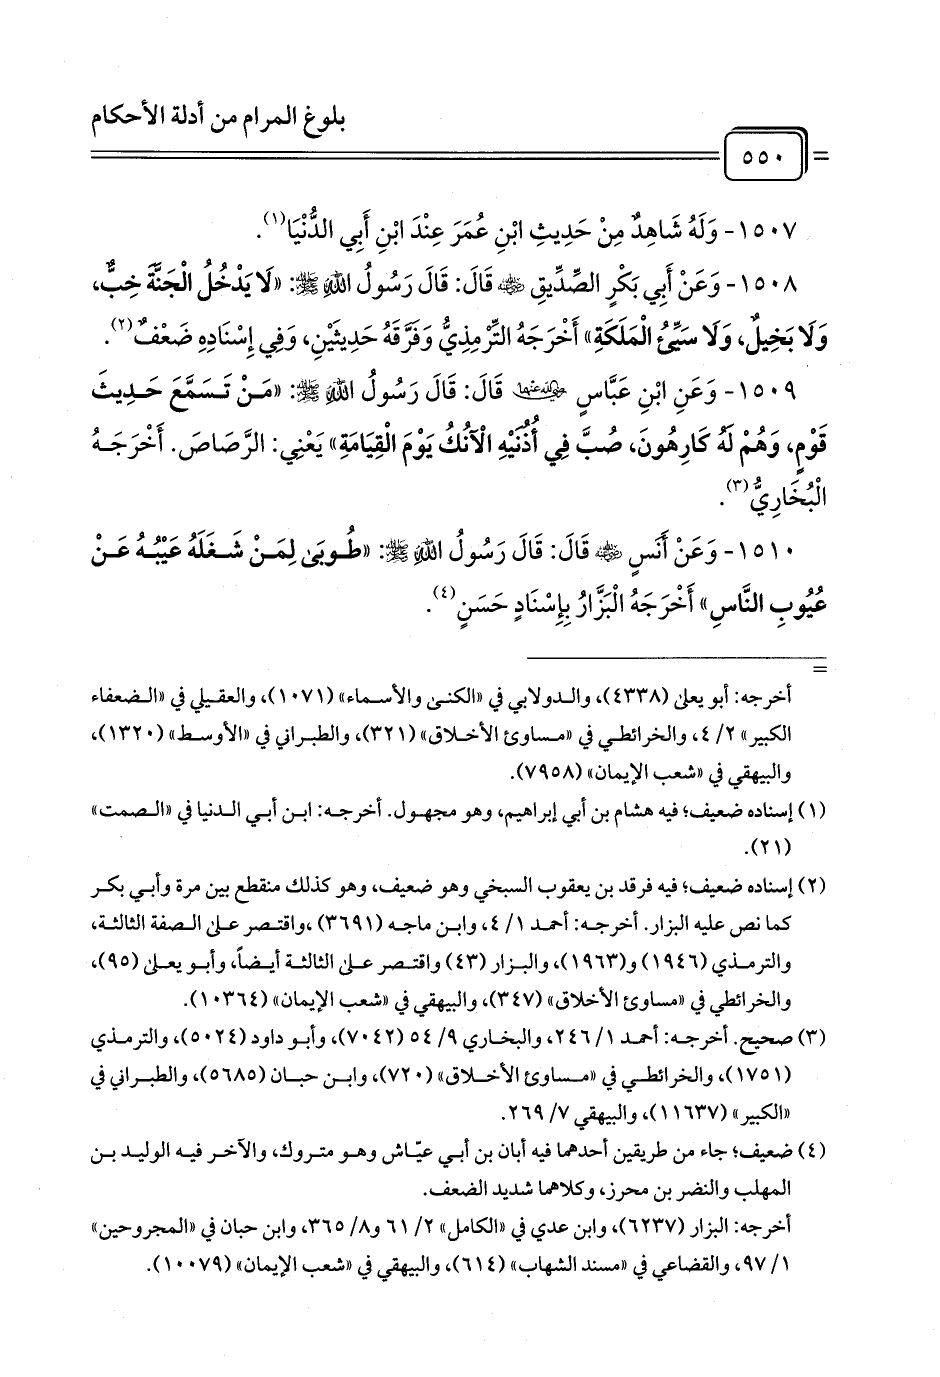 بلوغ المرام من أدلة الأحكام
٥٥٠
١٥٠٧- وَلَهُ شَاهِدٌ مِنْ حَدِيثِ ابْنِ عُمَرَ عِنْدَ ابْنِ أَبِي الدُّنْيَا(١).
١٥٠٨- وَعَنْ أَبِي بَكْرٍ الصِّدِّيقِ ﵁ قَالَ: قَالَ رَسُولُ اللهِ ﷺ: «لَا يَدْخُلُ الْجَنَّةَ خِبٌّ،
وَلَا بَخِيلٌ، وَلَا سَيِّئُ الْمَلَكَةِ» أَخْرَجَهُ التِّرْمِذِيُّ وَفَرَّقَهُ حَدِيثَيْنِ، وَفِي إِسْنَادِهِ ضَعْفٌ(٢).
١٥٠٩- وَعَنِ ابْنِ عَبَّاسٍ ﵄ قَالَ: قَالَ رَسُولُ اللهِ ﷺ: «مَنْ تَسَمَّعَ حَدِيثَ
قَوْمٍ، وَهُمْ لَهُ كَارِهُونَ، صُبَّ فِي أُذُنَيْهِ الْآنُكُ يَوْمَ الْقِيَامَةِ» يَعْنِي: الرَّصَاصَ. أَخْرَجَهُ
الْبُخَارِيُّ(٣).
١٥١٠- وَعَنْ أَنَسٍ ﵁ قَالَ: قَالَ رَسُولُ اللهِ ﷺ: «طُوبَىٰ لِمَنْ شَغَلَهُ عَيْبُهُ عَنْ
عُيُوبِ النَّاسِ» أَخْرَجَهُ الْبَزَّارُ بِإِسْنَادٍ حَسَنٍ(٤).
=
أخرجه: أبو يعلىٰ (٤٣٣٨)، والدولابي في «الكنىٰ والأسماء» (١٠٧١)، والعقيلي في «الضعفاء
الكبير» ٢/ ٤، والخرائطي في «مساوئ الأخلاق» (٣٢١)، والطبراني في «الأوسط» (١٣٢٠)،
والبيهقي في «شعب الإيمان» (٧٩٥٨).
(١) إسناده ضعيف؛ فيه هشام بن أبي إبراهيم، وهو مجهول. أخرجه: ابن أبي الدنيا في «الصمت»
(٢١).
(٢) إسناده ضعيف؛ فيه فرقد بن يعقوب السبخي وهو ضعيف، وهو كذلك منقطع بين مرة وأبي بكر
كما نص عليه البزار. أخرجه: أحمد ١/ ٤، وابن ماجه (٣٦٩١) ،واقتصر علىٰ الصفة الثالثة،
والترمذي (١٩٤٦) و(١٩٦٣)، والبزار (٤٣) واقتصر علىٰ الثالثة أيضاً، وأبو يعلىٰ (٩٥)،
والخرائطي في «مساوئ الأخلاق» (٣٤٧)، والبيهقي في «شعب الإيمان» (١٠٣٦٤).
(٣) صحيح. أخرجه: أحمد ١/ ٢٤٦، والبخاري ٩/ ٥٤ (٧٠٤٢)، وأبو داود (٥٠٢٤)، والترمذي
(١٧٥١)، والخرائطي في «مساوئ الأخلاق» (٧٢٠)، وابن حبان (٥٦٨٥)، والطبراني في
«الكبير» (١١٦٣٧)، والبيهقي ٧/ ٢٦٩.
(٤) ضعيف؛ جاء من طريقين أحدهما فيه أبان بن أبي عيّاش وهو متروك، والآخر فيه الوليد بن
المهلب والنضر بن محرز، وكلاهما شديد الضعف.
أخرجه: البزار (٦٢٣٧)، وابن عدي في «الكامل» ٢/ ٦١ و٨/ ٣٦٥، وابن حبان في «المجروحين»
١/ ٩٧، والقضاعي في «مسند الشهاب» (٦١٤)، والبيهقي في «شعب الإيمان» (١٠٠٧٩).